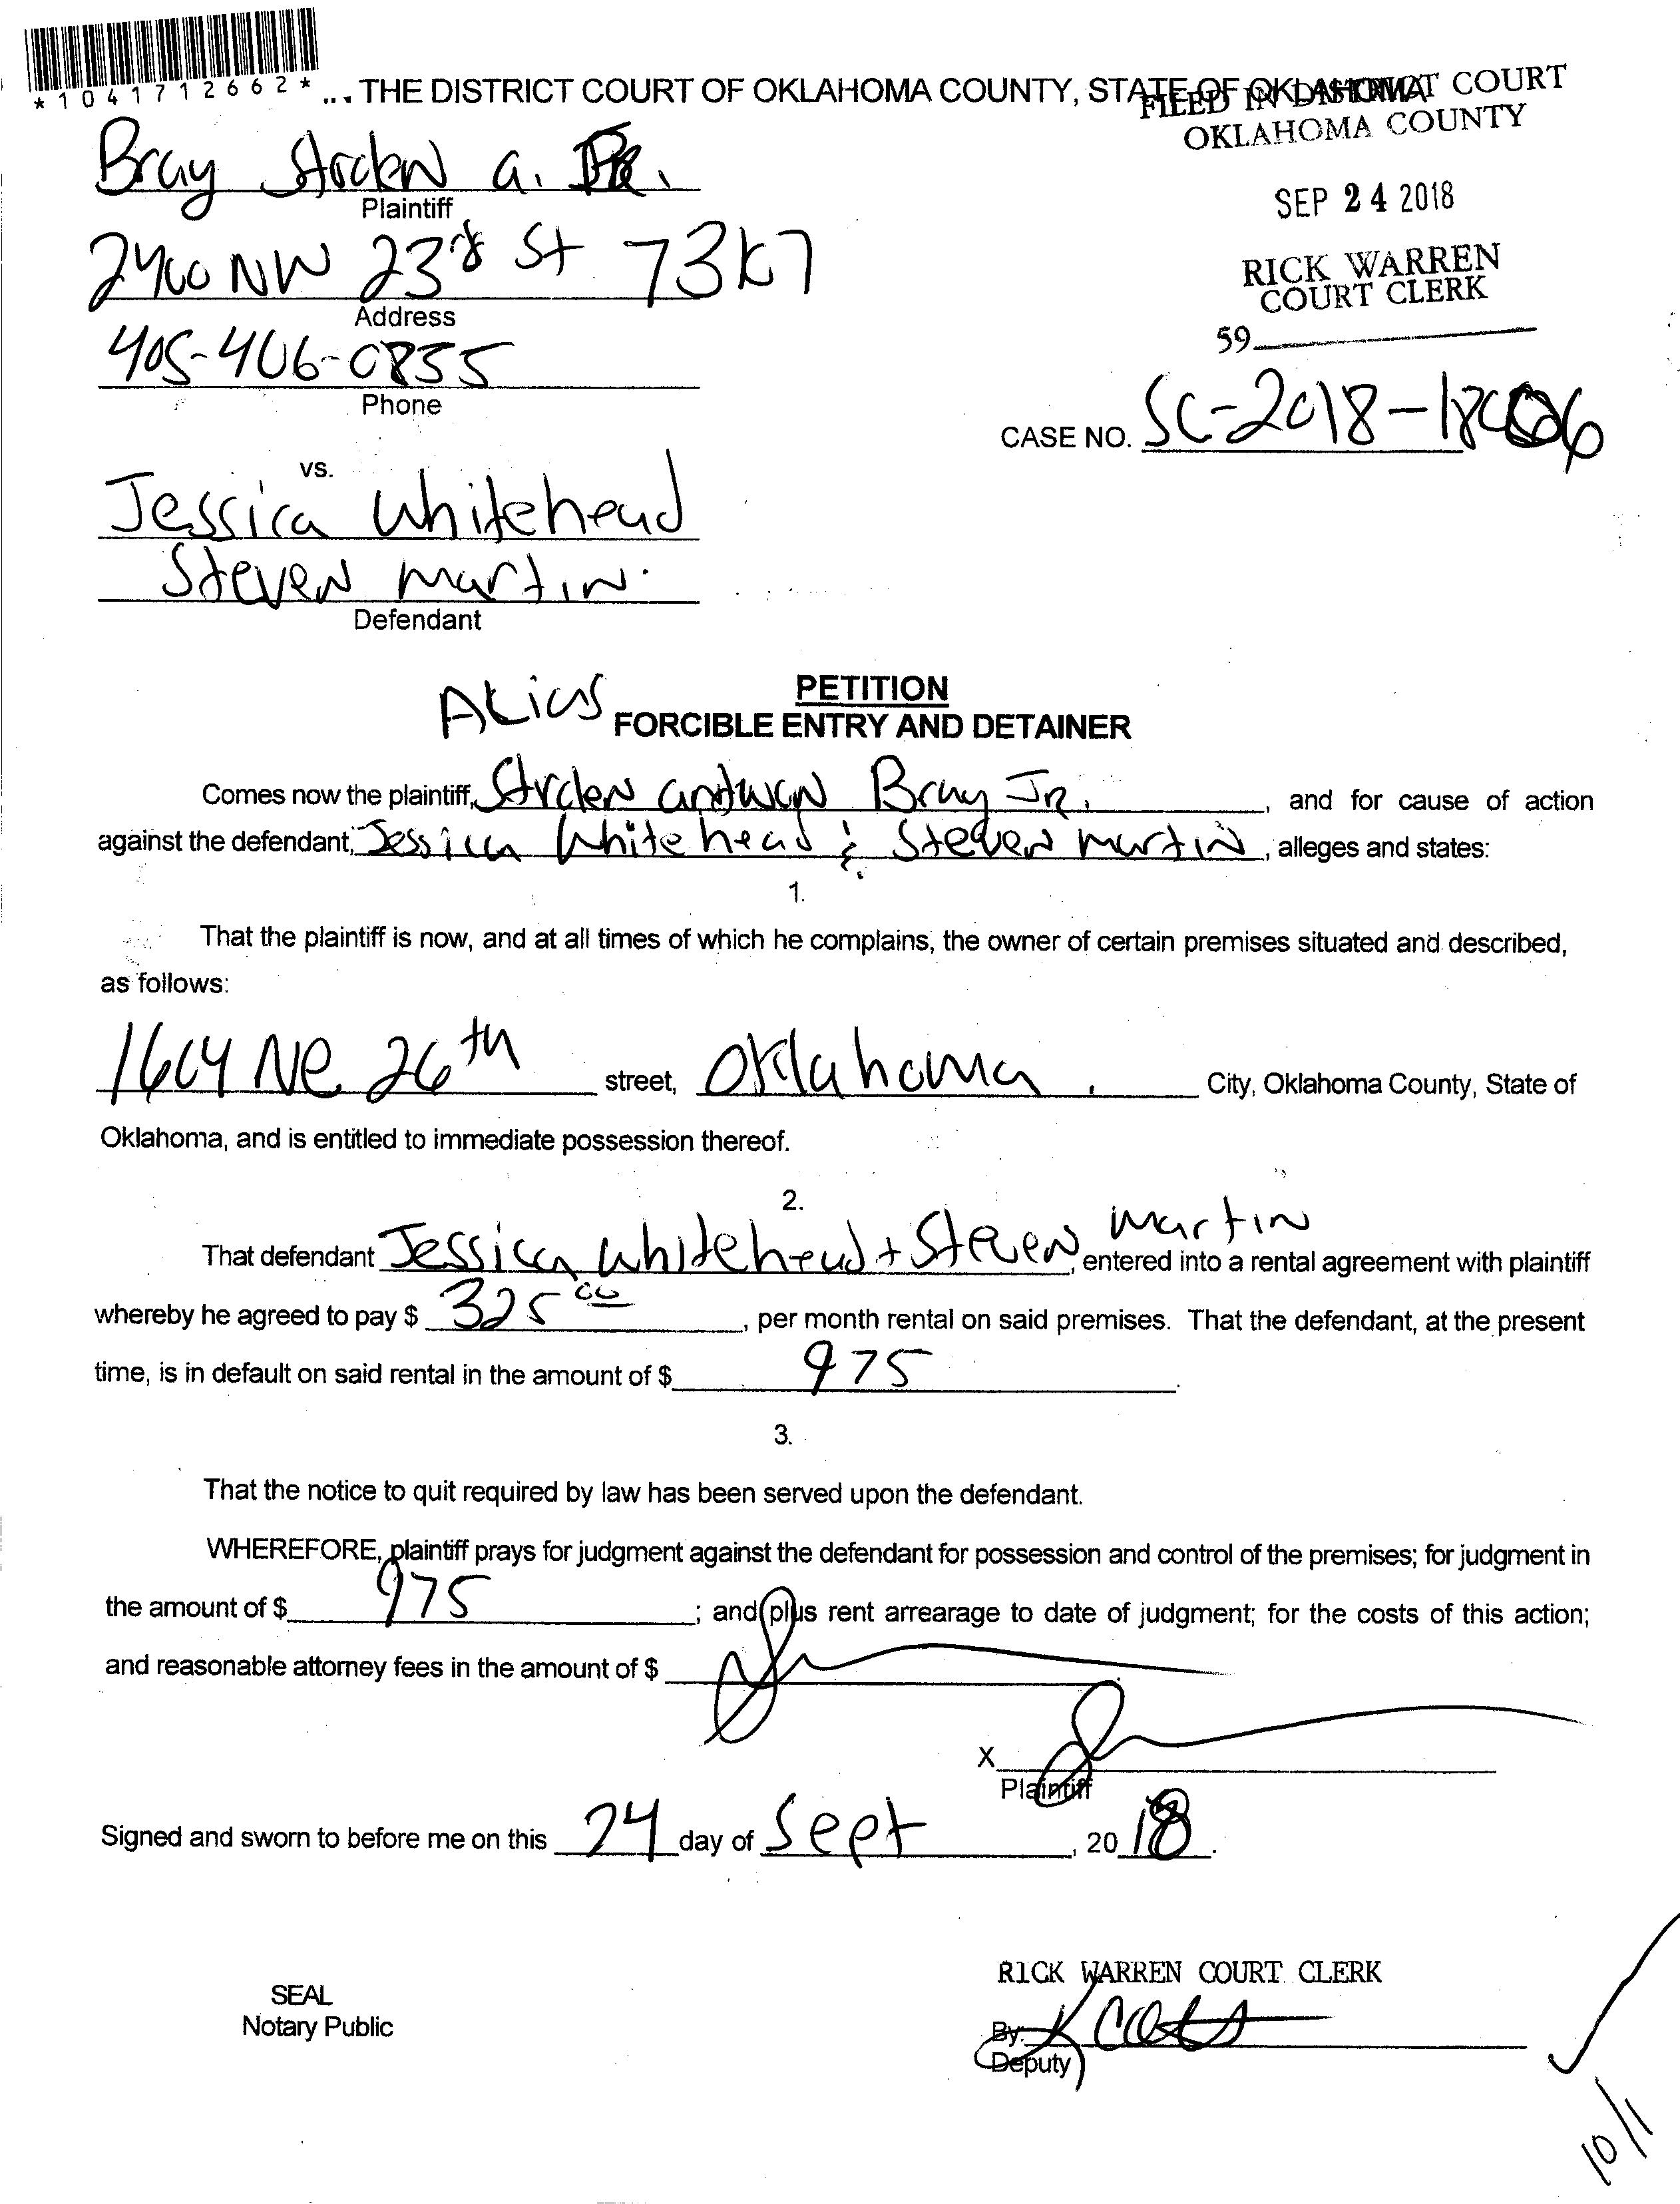 *1041712662*
... THE DISTRICT COURT OF OKLAHOMA COUNTY, STATE OF OKLAHOMA
FILED IN DISTRICT COURT
OKLAHOMA COUNTY
Bray a.
Plaintiff
SEP 24 2018
2400 NW 23rd St
Address
RICK WARREN
COURT CLERK
59
405-406-0855
Phone
CASE NO. SC-2018-
vs.
Jessica Whitehead
Steven Martin.
Defendant
Alias
PETITION
FORCIBLE ENTRY AND DETAINER
Comes now the plaintiff, Bray Jr. , and for cause of action
against the defendant, Jessica Whitehead & Steven Martin , alleges and states:
1.
That the plaintiff is now, and at all times of which he complains, the owner of certain premises situated and described,
as follows:
1604 NE 26th street, Oklahoma . City, Oklahoma County, State of
Oklahoma, and is entitled to immediate possession thereof.
2.
That defendant Jessica Whitehead + Steven Martin , entered into a rental agreement with plaintiff
whereby he agreed to pay $ 325 00 , per month rental on said premises. That the defendant, at the present
time, is in default on said rental in the amount of $ 975 .
3.
That the notice to quit required by law has been served upon the defendant.
WHEREFORE, plaintiff prays for judgment against the defendant for possession and control of the premises; for judgment in
the amount of $ 975 ; and plus rent arrearage to date of judgment; for the costs of this action;
and reasonable attorney fees in the amount of $
X
Plaintiff
Signed and sworn to before me on this 24 day of Sept , 20 18 .
RICK WARREN COURT CLERK
SEAL
Notary Public
By:
Deputy
10/1